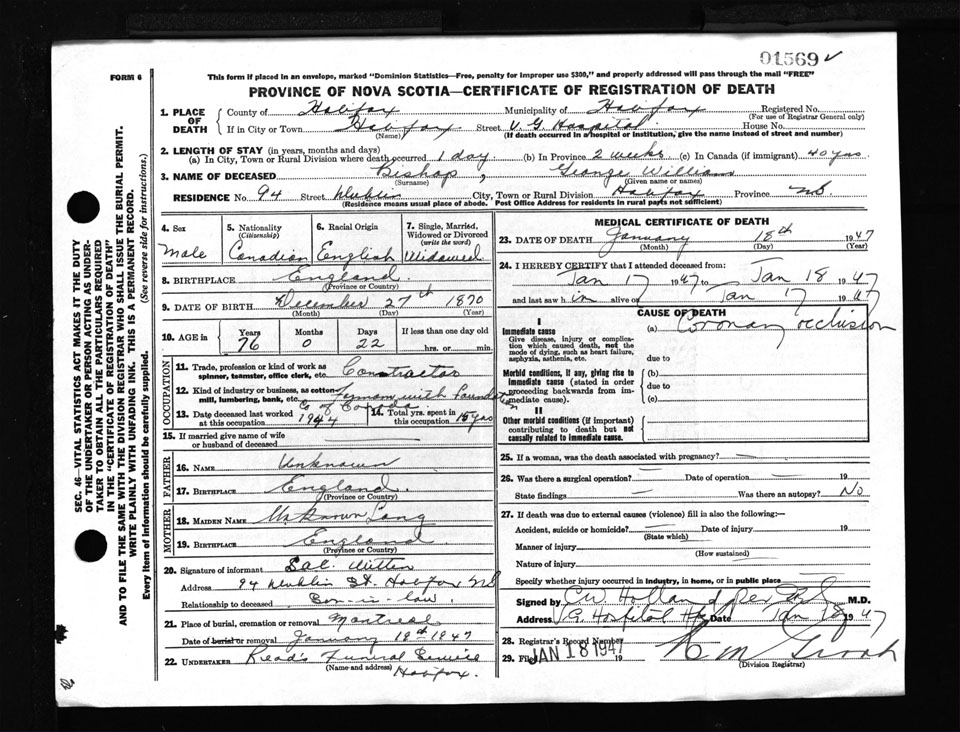 01569 ✓
FORM 6
This form if placed in an envelope, marked "Dominion Statistics—Free, penalty for improper use $300," and properly addressed will pass through the mail "FREE"
PROVINCE OF NOVA SCOTIA—CERTIFICATE OF REGISTRATION OF DEATH
1. PLACE OF DEATH County of Halifax Municipality of Halifax Registered No.
(For use of Registrar General only)
If in City or Town Halifax Street V. G. Hospital House No.
(Name) (If death occurred in a hospital or institution, give the name instead of street and number)
2. LENGTH OF STAY (in years, months and days)
(a) In City, Town or Rural Division where death occurred 1 day (b) In Province 2 weeks (c) In Canada (if immigrant) 40 yrs
3. NAME OF DECEASED Bishop, George William
(Surname) (Given name or names)
RESIDENCE No. 94 Street Dublin City, Town or Rural Division Halifax Province NS
(Residence means usual place of abode. Post Office Address for residents in rural parts not sufficient)
4. Sex Male
5. Nationality (Citizenship) Canadian
6. Racial Origin English
7. Single, Married, Widowed or Divorced (write the word) Widowed
8. BIRTHPLACE England
(Province or Country)
9. DATE OF BIRTH December 27th 1870
(Month) (Day) (Year)
10. AGE in Years 76 Months 0 Days 22 If less than one day old hrs. or min.
OCCUPATION
11. Trade, profession or kind of work as spinner, teamster, office clerk, etc. Contractor
12. Kind of industry or business, as cotton mill, lumbering, bank, etc. with Foundation Co of Canada
13. Date deceased last worked at this occupation 1944
14. Total yrs. spent in this occupation 15 yrs
15. If married give name of wife or husband of deceased —
FATHER
16. NAME Unknown
17. BIRTHPLACE England
(Province or Country)
MOTHER
18. MAIDEN NAME Unknown Lang
19. BIRTHPLACE England
(Province or Country)
20. Signature of informant
Address 94 Dublin St. Halifax NS
Relationship to deceased Son-in-law.
21. Place of burial, cremation or removal Montreal
Date of burial or removal January 18th 1947
22. UNDERTAKER Read's Funeral Service
(Name and address) Halifax.
MEDICAL CERTIFICATE OF DEATH
23. DATE OF DEATH January 18th 1947
(Month) (Day) (Year)
24. I HEREBY CERTIFY that I attended deceased from:
Jan 17 1947 to Jan 18 1947
and last saw him alive on Jan 17 1947
CAUSE OF DEATH
I
Immediate cause
Give disease, injury or complication which caused death, not the mode of dying, such as heart failure, asphyxia, asthenia, etc.
(a) Coronary occlusion
due to
Morbid conditions, if any, giving rise to immediate cause (stated in order of proceeding backwards from immediate cause).
(b)
due to
(c)
II
Other morbid conditions (if important) contributing to death but not causally related to immediate cause.
25. If a woman, was the death associated with pregnancy? —
26. Was there a surgical operation? — Date of operation — 19
State findings — Was there an autopsy? No
27. If death was due to external causes (violence) fill in also the following:—
Accident, suicide or homicide? — Date of injury 19
(State which)
Manner of injury
(How sustained)
Nature of injury
Specify whether injury occurred in industry, in home, or in public place
Signed by C W Holland per M.D.
Address V. G. Hospital Hfx Date Jan 18 1947
28. Registrar's Record Number
29. Filed JAN 18 1947 19
(Division Registrar)
SEC. 46—VITAL STATISTICS ACT MAKES IT THE DUTY
OF THE UNDERTAKER OR PERSON ACTING AS UNDER-
TAKER TO OBTAIN ALL THE PARTICULARS REQUIRED
IN THE "CERTIFICATE OF REGISTRATION OF DEATH"
AND TO FILE THE SAME WITH THE DIVISION REGISTRAR WHO SHALL ISSUE THE BURIAL PERMIT.
WRITE PLAINLY WITH UNFADING INK. THIS IS A PERMANENT RECORD.
Every item of information should be carefully supplied. (See reverse side for instructions.)